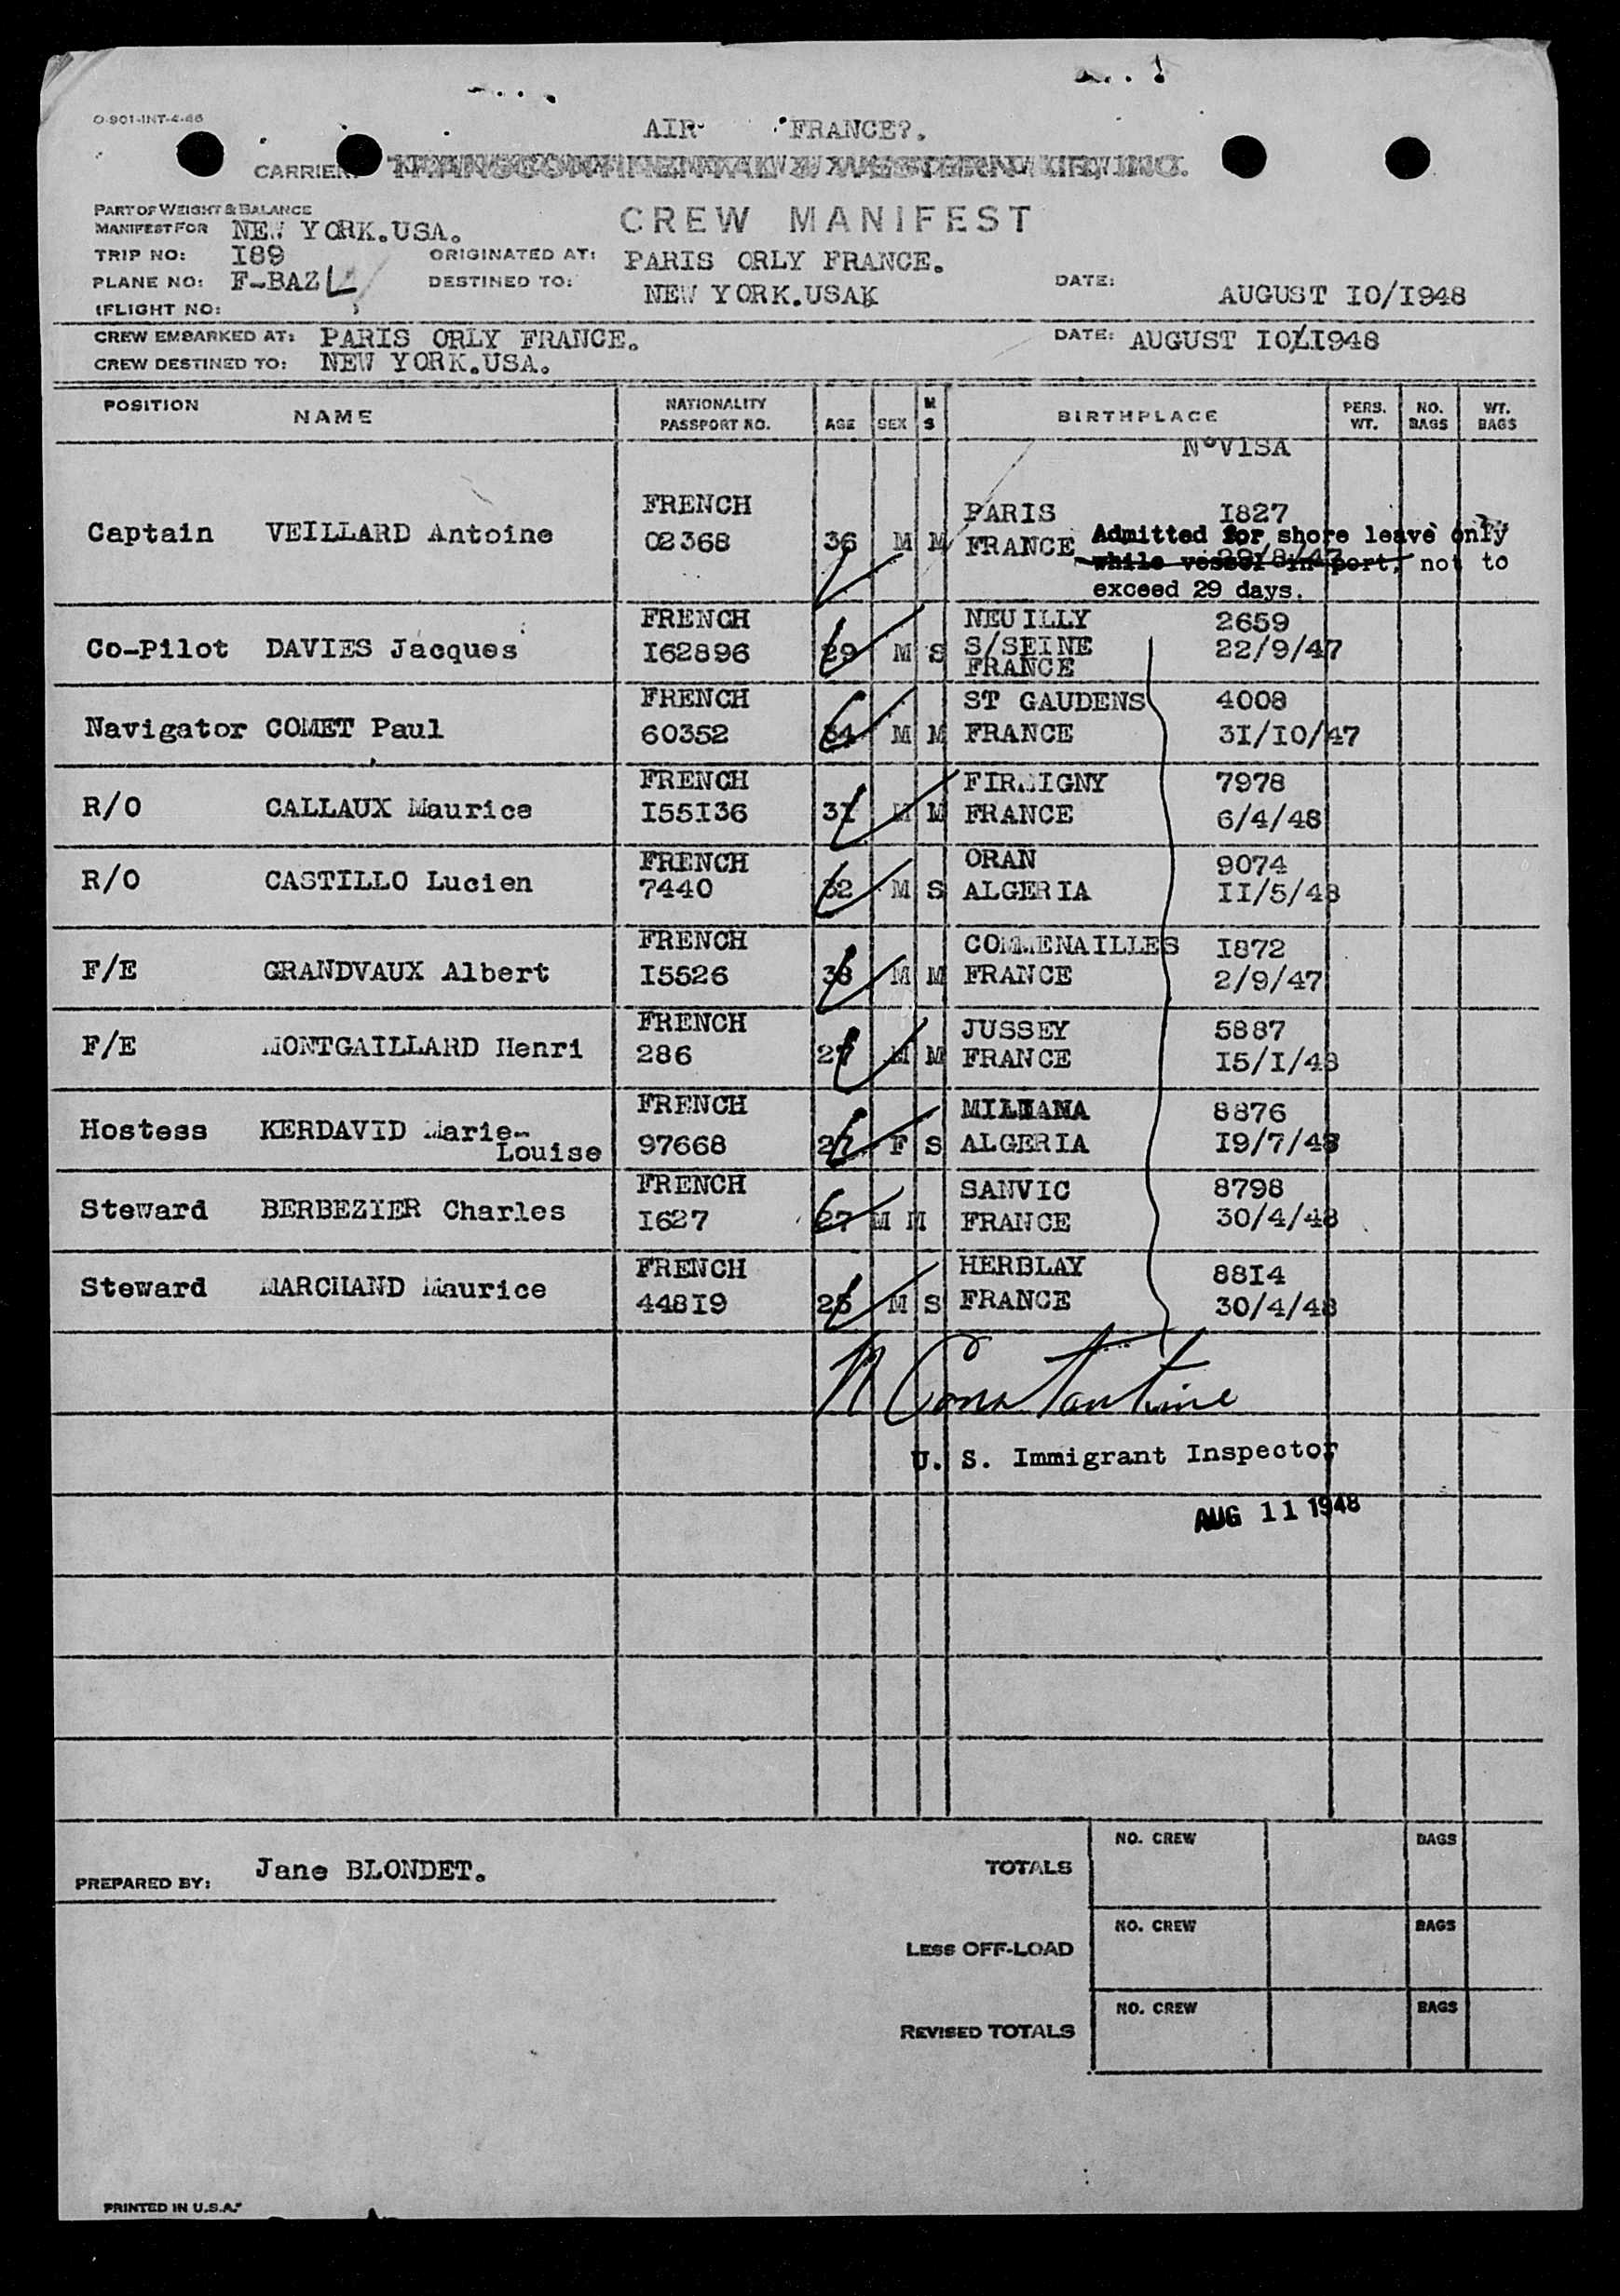 O-901-INT-4-46
AIR FRANCE?.
CARRIER:
PART OF WEIGHT & BALANCE
MANIFEST FOR NEW YORK.USA.
CREW MANIFEST
TRIP NO: I89
ORIGINATED AT: PARIS ORLY FRANCE.
PLANE NO: F-BAZ
DESTINED TO: NEW YORK.USAK
DATE: AUGUST IO/I948
(FLIGHT NO:
CREW EMBARKED AT: PARIS ORLY FRANCE.
DATE: AUGUST IO/I948
CREW DESTINED TO: NEW YORK.USA.
POSITION NAME NATIONALITY PASSPORT NO. AGE SEX M S BIRTHPLACE PERS. WT. NO. BAGS WT. BAGS
N°VISA
FRENCH PARIS I827
Captain VEILLARD Antoine 02368 36 M M FRANCE 29/8/47
Admitted for shore leave only
while vessel in port, not to
exceed 29 days.
FRENCH NEUILLY 2659
Co-Pilot DAVIES Jacques I62896 29 M S S/SEINE 22/9/47
FRANCE
FRENCH ST GAUDENS 4008
Navigator COMET Paul 60352 34 M M FRANCE 3I/IO/47
FRENCH FIRMIGNY 7978
R/O CALLAUX Maurice I55I36 3I M M FRANCE 6/4/48
FRENCH ORAN 9074
R/O CASTILLO Lucien 7440 32 M S ALGERIA II/5/48
FRENCH COMMENAILLES I872
F/E GRANDVAUX Albert I5526 38 M M FRANCE 2/9/47
FRENCH JUSSEY 5887
F/E MONTGAILLARD Henri 286 27 M M FRANCE I5/I/48
FRENCH MILIANA 8876
Hostess KERDAVID Marie- 97668 27 F S ALGERIA I9/7/48
Louise
FRENCH SANVIC 8798
Steward BERBEZIER Charles I627 27 M M FRANCE 30/4/48
FRENCH HERBLAY 88I4
Steward MARCHAND Maurice 448I9 26 M S FRANCE 30/4/48
N Constantine
U. S. Immigrant Inspector
AUG 11 1948
NO. CREW BAGS
PREPARED BY: Jane BLONDET.
TOTALS
NO. CREW BAGS
LESS OFF-LOAD
NO. CREW BAGS
REVISED TOTALS
PRINTED IN U.S.A.